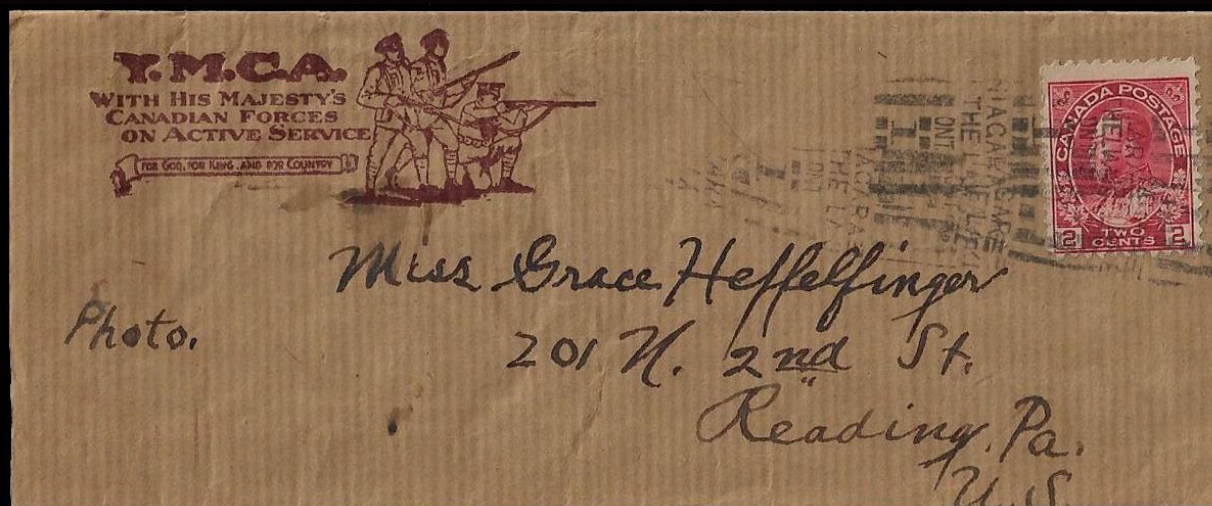 Y.M.C.A.
WITH HIS MAJESTY'S
CANADIAN FORCES
ON ACTIVE SERVICE
FOR GOD, FOR KING, AND FOR COUNTRY
CANADA POSTAGE
2 TWO CENTS 2
ONT
THE
ONT
THE
Photo.
Miss Grace Heffelfinger
201 N. 2nd St.
Reading, Pa.
U.S.